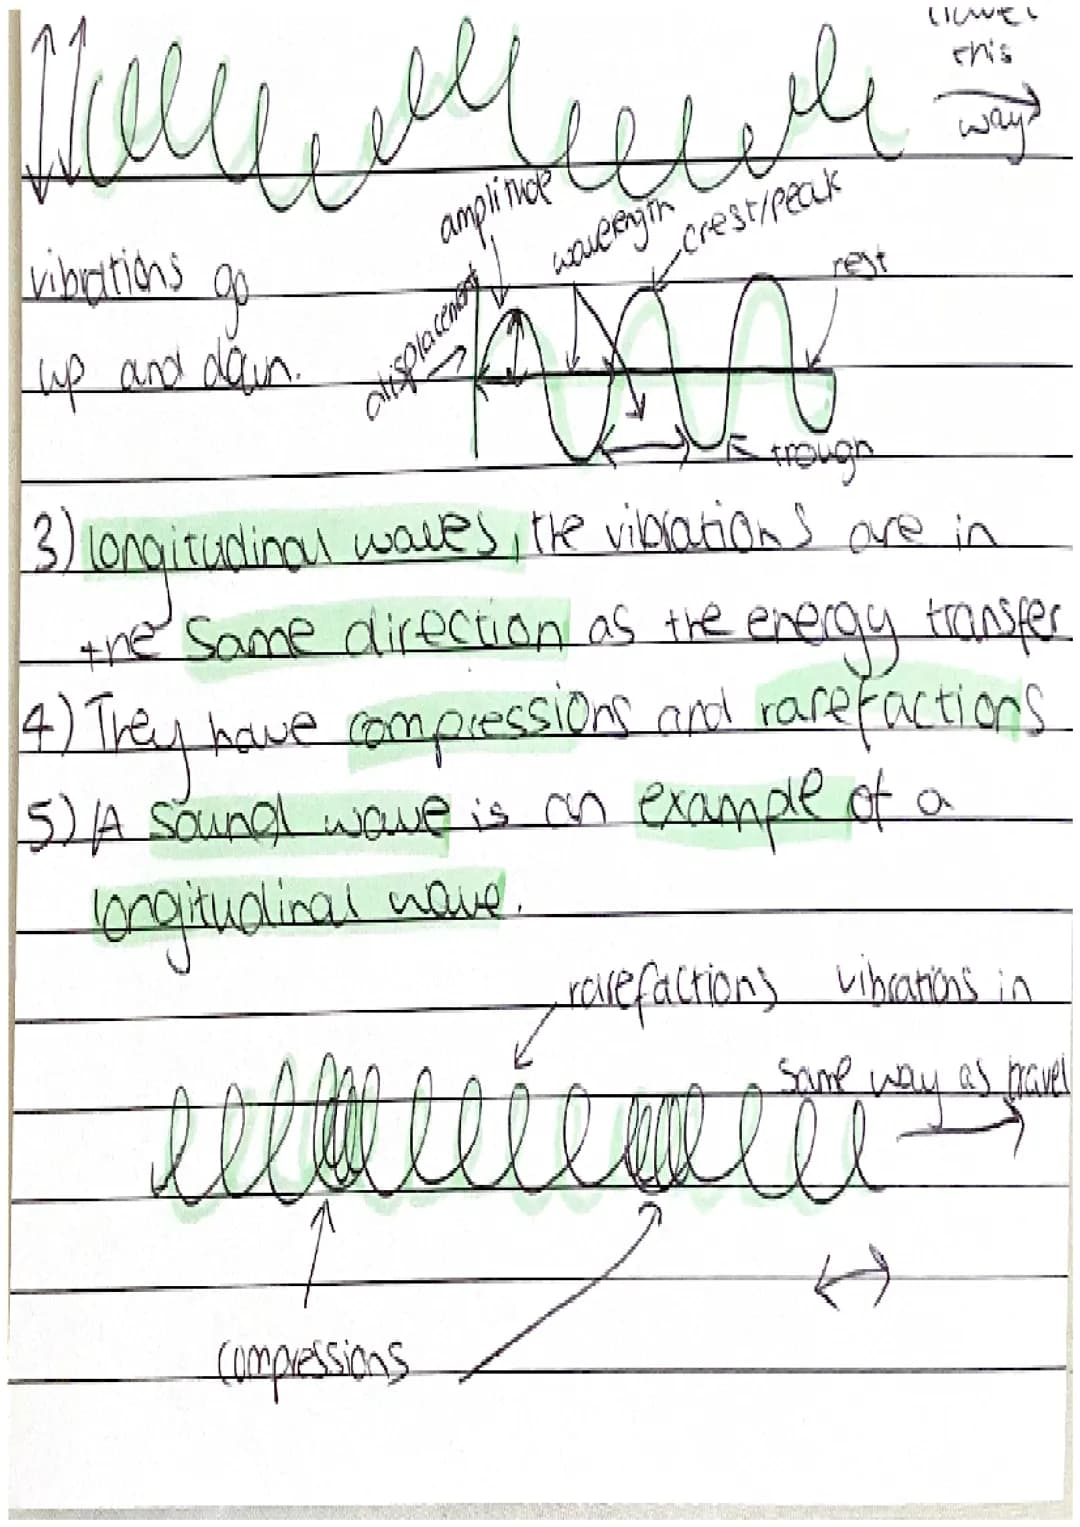 travel
this
way
amplitude
wavelength
crest/peak
vibrations go
displacement
rest
up and down.
trough
3) longitudinal waves, the vibrations are in
the same direction as the energy transfer
4) They have compressions and rarefactions
5) A sound wave is an example of a
longitudinal wave.
rarefactions vibrations in
same way as travel
compressions